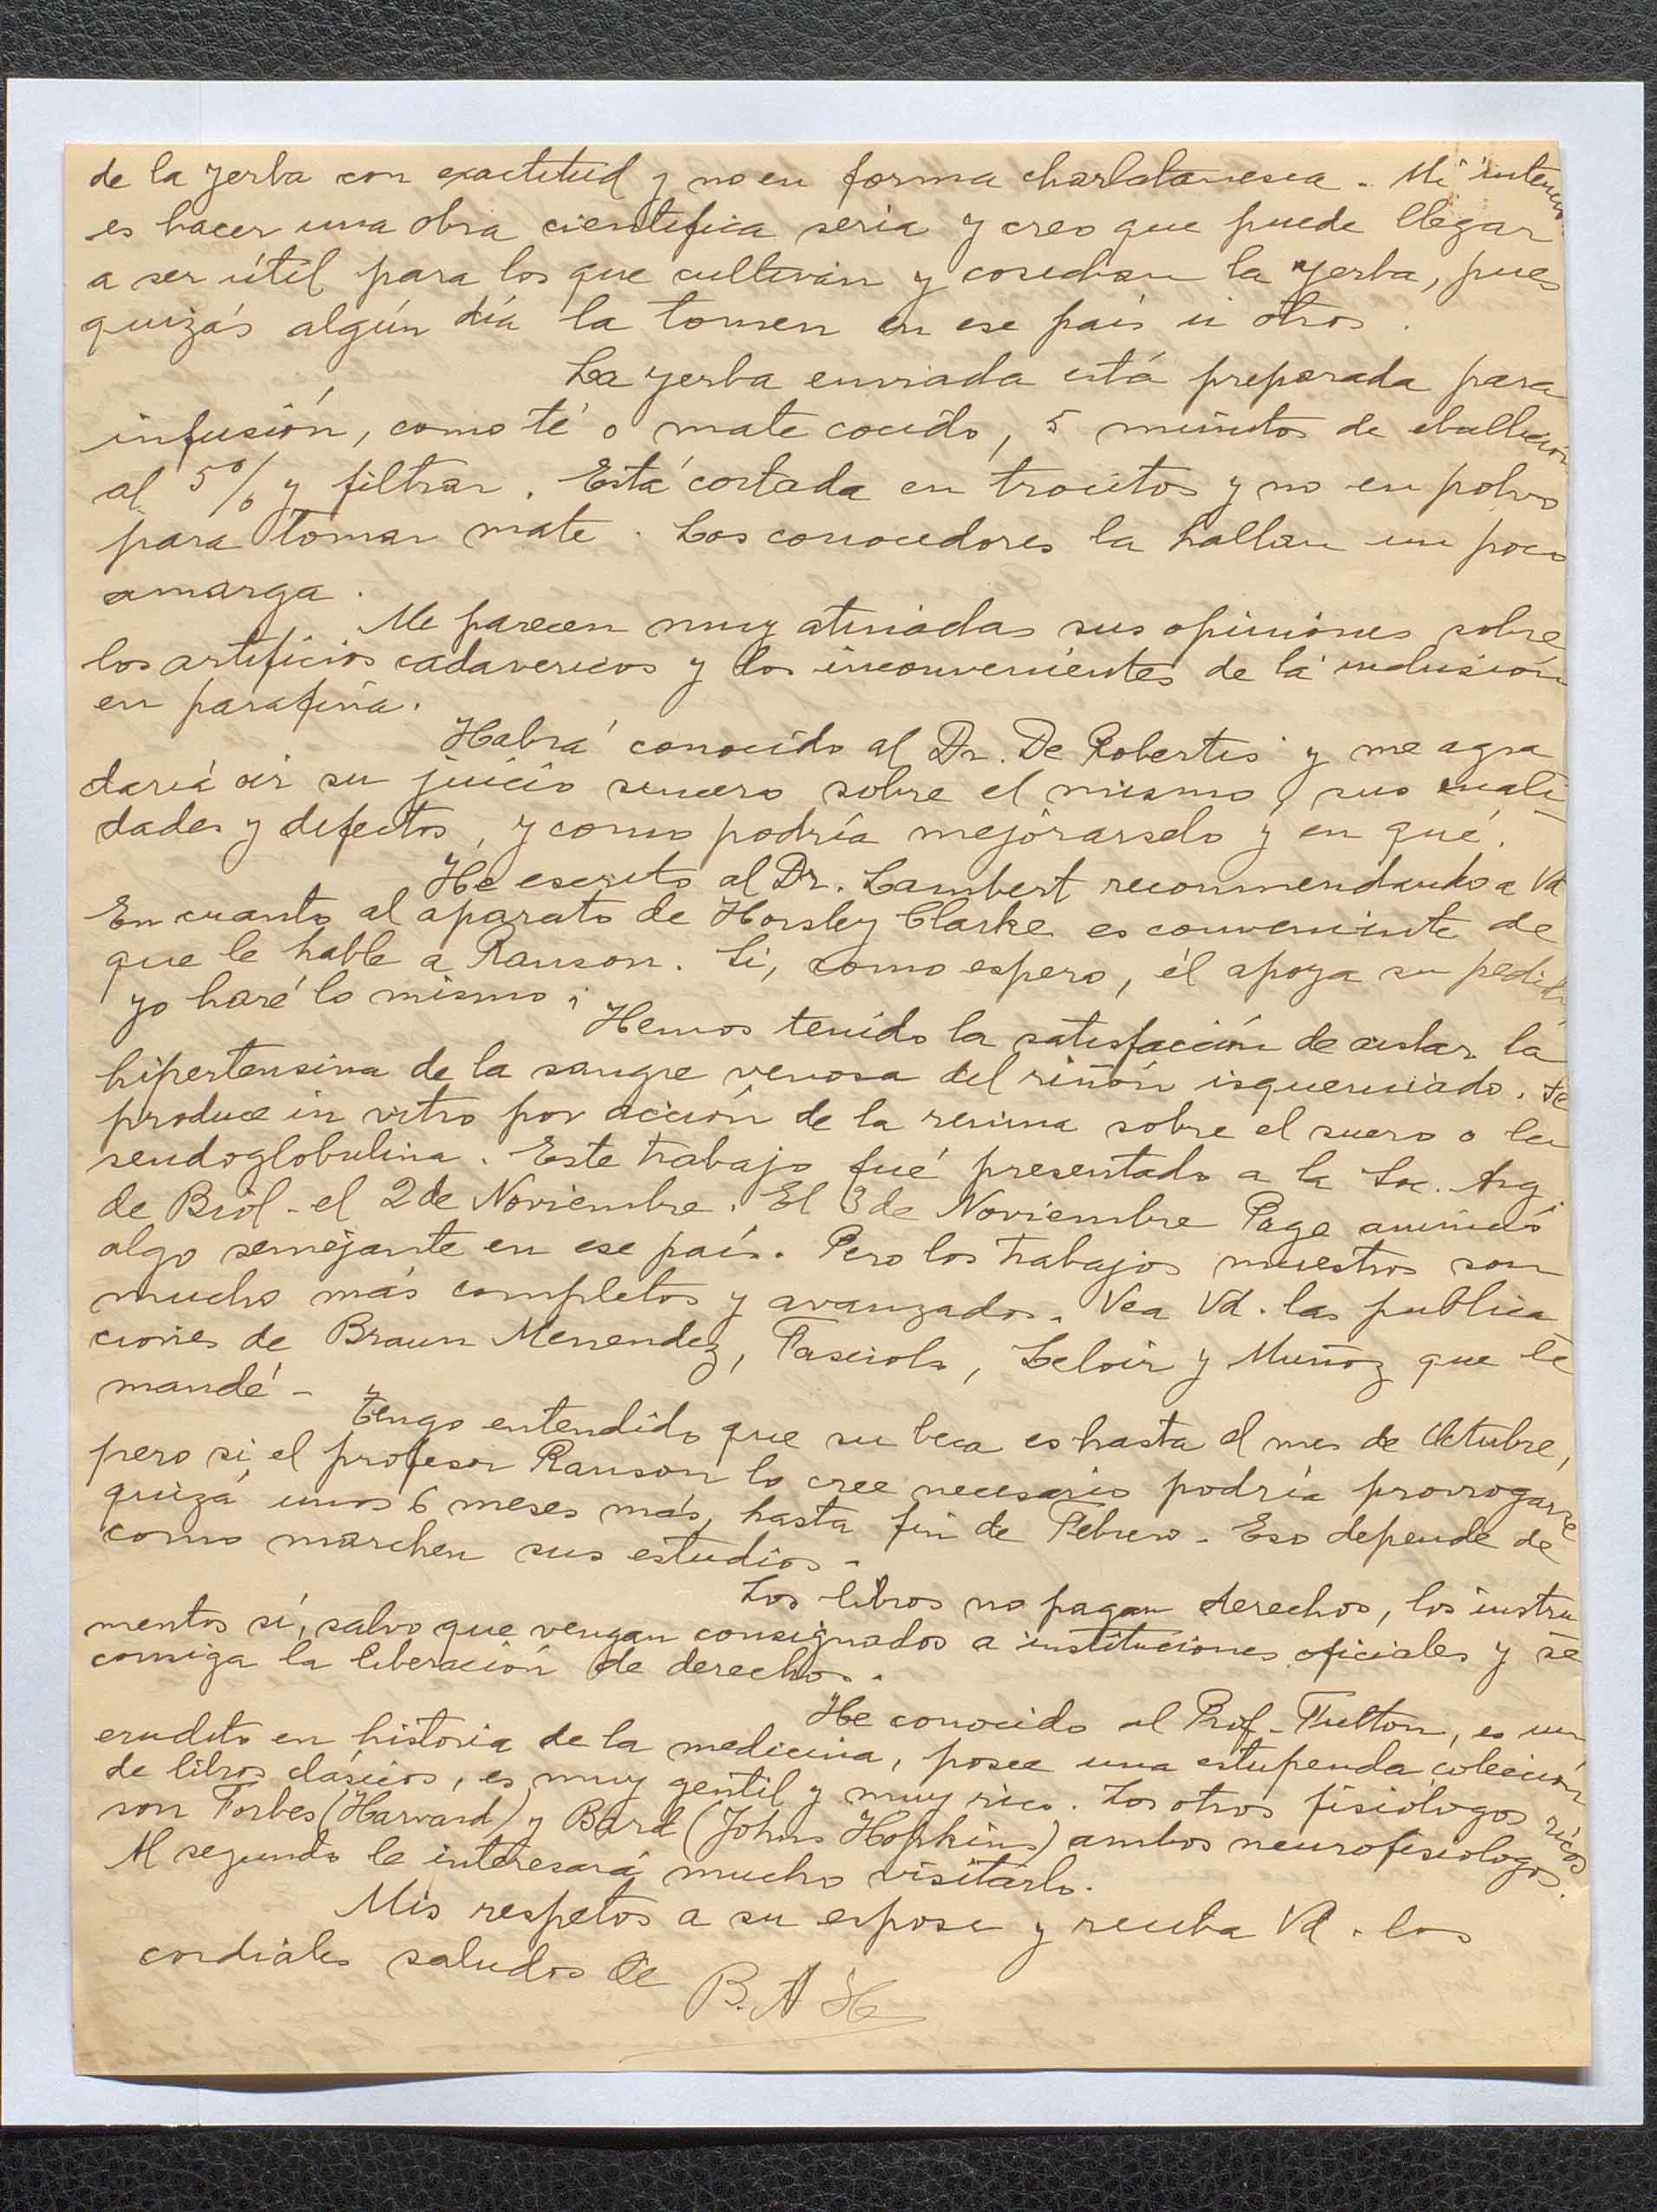 de la yerba con exactitud y no en forma charlatanesca. Mi intención
es hacer una obra cientifica seria y creo que puede llegar
a ser útil para los que cultivan y cosechan la yerba, pues
quizás algún día la tomen en ese país u otros.
La yerba enviada está preparada para
infusión, como té o mate cocido, 5 minutos de ebullición
al 5% y filtrar. Está cortada en trocitos y no en polvo
para tomar mate. Los conocedores la hallan un poco
amarga.
Me parecen muy atinadas sus opiniones sobre
los artificios cadavericos y los inconvenientes de la inclusión
en parafina.
Habrá conocido al Dr. De Robertis y me agra
daría oir su juicio sincero sobre el mismo, sus cuali-
dades y defectos, y como podría mejorárselo y en qué.
He escrito al Dr. Lambert recommendando a Vd
En cuanto al aparato de Horsley Clarke es conveniente de
que le hable a Ranson. Si, como espero, él apoya su pedido
yo haré lo mismo.
Hemos tenido la satisfacción de aislar la
hipertensina de la sangre venosa del riñón isquemiado. Se
produce in vitro por acción de la renina sobre el suero o la
seudoglobulina. Este trabajo fué presentado a la Soc. Arg.
de Biol. el 2 de Noviembre. El 3 de Noviembre Page anunció
algo semejante en ese país. Pero los trabajos nuestros son
mucho más completos y avanzados. Vea Vd. las publica
ciones de Braun Menendez, Fasciolo, Leloir y Muñoz que le
mandé -
Tengo entendido que su beca es hasta el mes de Octubre,
pero si el profesor Ranson lo cree necesario podría prorrogarse
quizá unos 6 meses más, hasta fin de Febrero. Eso depende de
como marchen sus estudios.
Los libros no pagan derechos, los instru
mentos sí, salvo que vengan consignados a instituciones oficiales y se
consiga la liberación de derechos.
He conocido al Prof. Fulton, es un
erudito en historia de la medicina, posee una estupenda colección
de libros clásicos, es muy gentil y muy rico. Los otros fisiólogos ricos
son Forbes (Harvard) y Bard (Johns Hopkins) ambos neurofisiologos.
Al segundo le interesará mucho visitarlo.
Mis respetos a su esposa y reciba Vd. los
cordiales saludos de B. A H